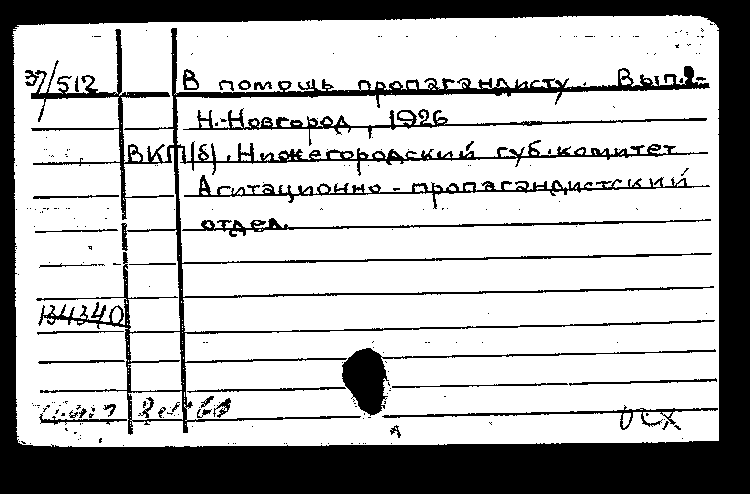 37/512 В помощь пропагандисту. Вып.2-
Н.-Новгород, 1926
ВКП(б). Нижегородский губ.комитет
Агитационно-пропагандистский
отдел.
134340
А